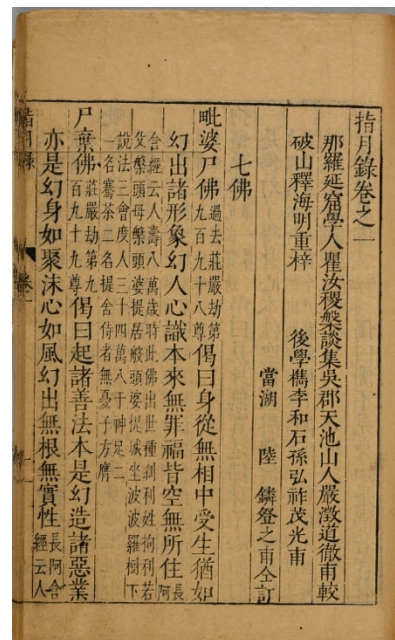 指月錄卷之一
那羅延窟學人瞿汝稷槃談集吳郡天池山人嚴澂道徹甫較
破山釋海明重梓 後學檇李和石孫弘祚茂光甫
當湖 陸 鏻登之甫仝訂
七佛
毗婆尸佛過去莊嚴劫第九百九十八尊偈曰身從無相中受生猶如
幻出諸形象幻人心識本來無罪福皆空無所住長阿
含經云人壽八萬歲時此佛出世種剎利姓拘利若
父槃頭母槃頭婆提居般頭婆提城坐波波羅樹下
說法三會度人三十四萬八千神足二
一名騫茶二名提舍侍者無憂子方膺
尸棄佛莊嚴劫第九百九十九尊偈曰起諸善法本是幻造諸惡業
亦是幻身如聚沫心如風幻出無根無實性長阿含經云人
指月錄 卷一